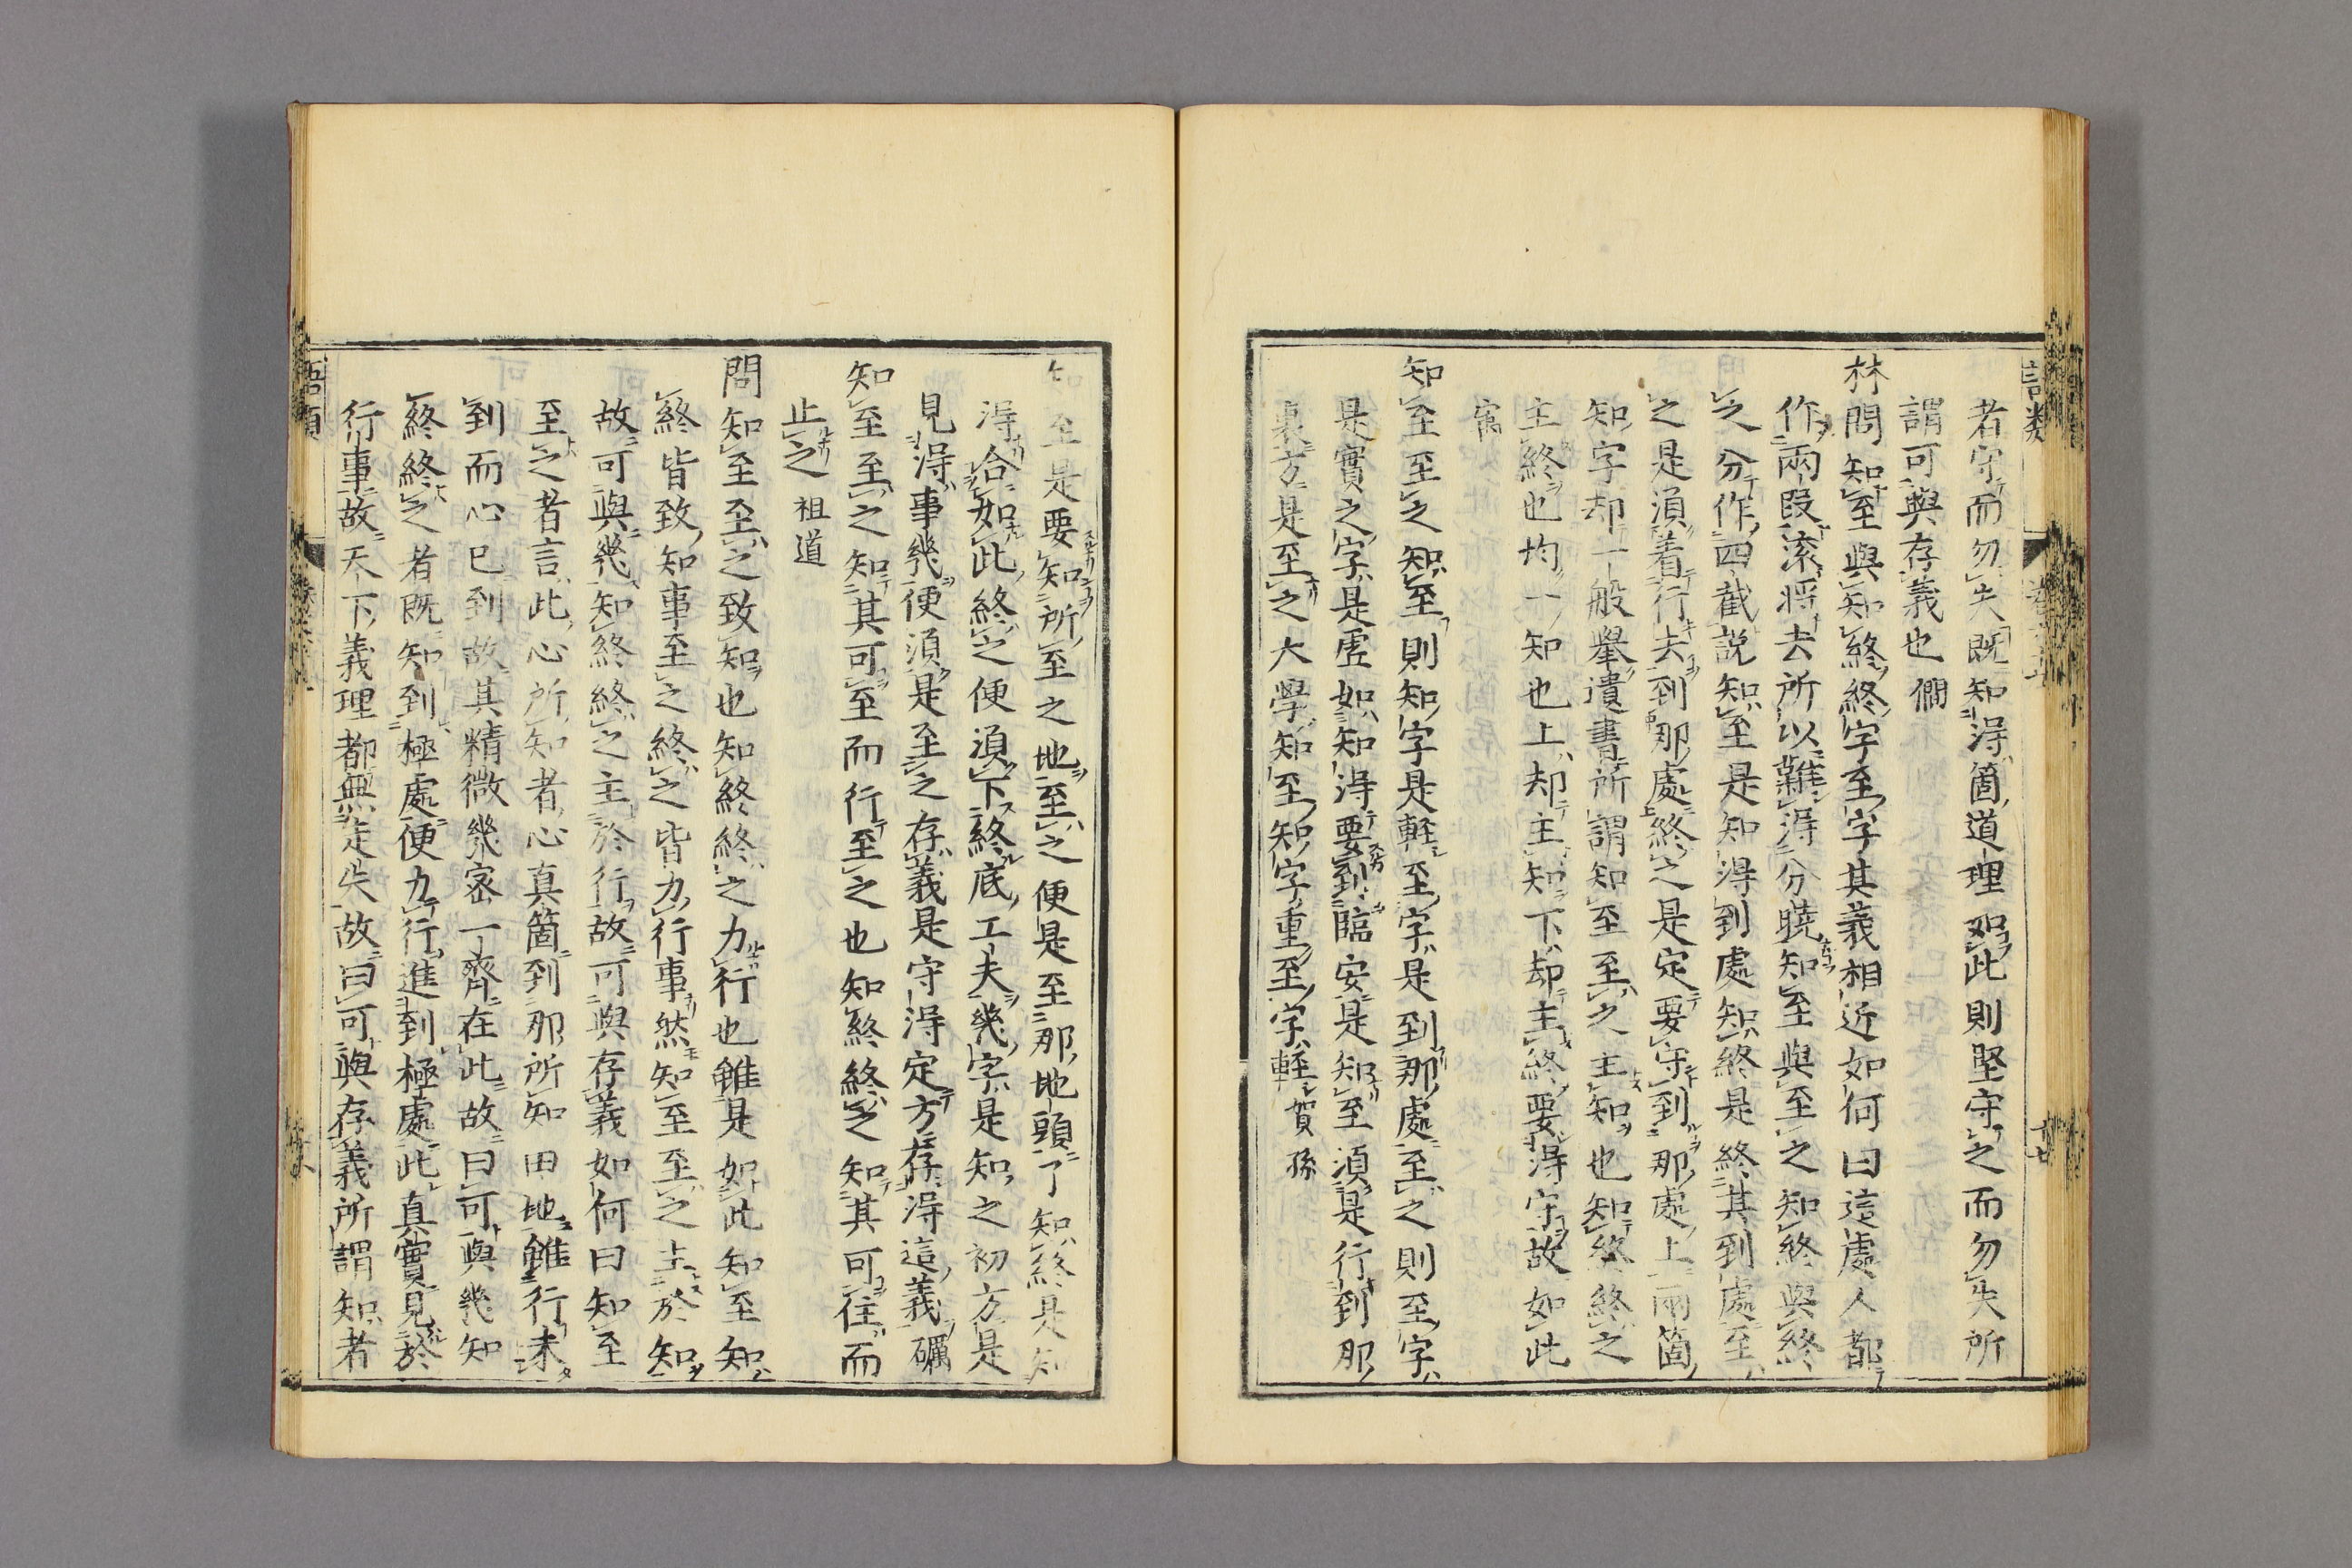 者守而勿失既知得箇道理如此則堅守之而勿失所
謂可與存義也僩
林問知至與知終終字至字其義相近如何曰這處人都
作兩段滚将去所以難得分曉知至與至之知終與終
之分作四截説知至是知得到處知終是終其到處至
之是湏着行去到那處終之是定要守到那處上兩箇
知字却一般擧遺書所謂知至至之主知也知終終之
主終也均一知也上却主知下却主終要得守故如此
㝢
知至至之知至則知字是軽至字是到那處至之則至字
是實之字是虚如知得要到臨安是知至湏是行到那
裏方是至之大學知至知字重至字軽賀孫
知至是要知所至之地至之便是至那地頭了知終是知
得合如此終之便湏下終底工夫幾字是知之初方是
見得事幾便湏是至之存義是守得定方存得這義礪
知至至之知其可至而行至之也知終終之知其可往而
止之祖道
問知至至之致知也知終終之力行也雖是如此知至知
終皆致知事至之終之皆力行事然知至至之主於知
故可與幾知終終之主於行故可與存義如何曰知至
至之者言此心所知者心真箇到那所知田地雖行未
到而心已到故其精微幾宻一齊在此故曰可與幾知
終終之者既知到極處便力行進到極處此真實見於
行事故天下義理都無走失故曰可與存義所謂知者